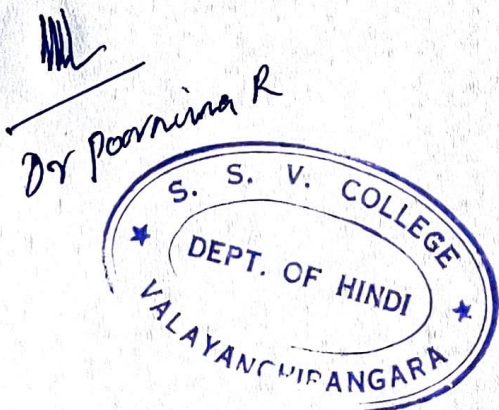 Dr Poornima R
S. S. V. COLLEGE
DEPT. OF HINDI
VALAYANCHIRANGARA